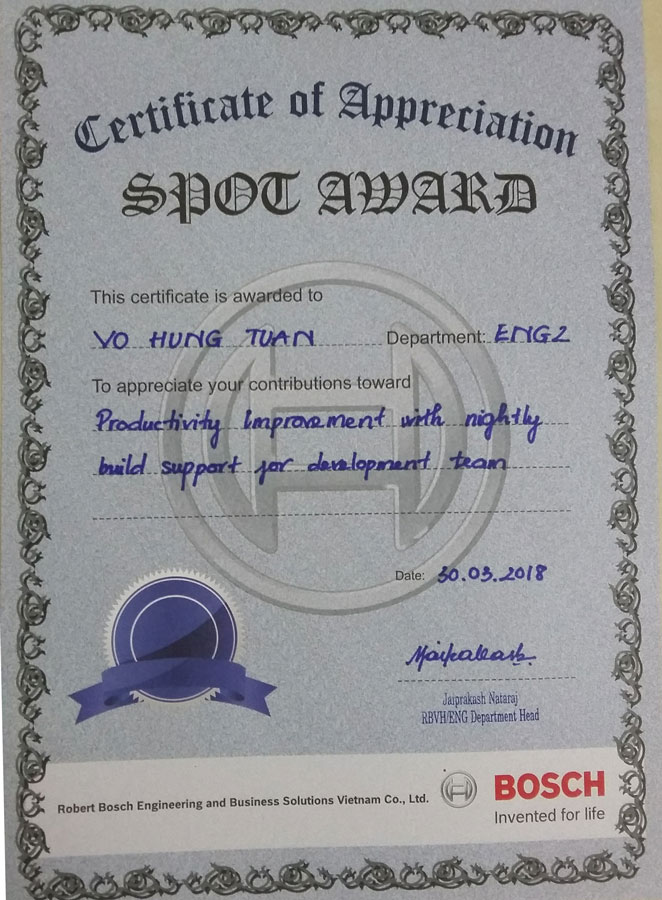 Certificate of Appreciation
SPOT AWARD
This certificate is awarded to
VO HUNG TUAN Department: ENG2
To appreciate your contributions toward
Productivity Improvement with nightly
build support for development team
Date: 30.03.2018
Jaiprakash Nataraj
RBVH/ENG Department Head
Robert Bosch Engineering and Business Solutions Vietnam Co., Ltd.
BOSCH
Invented for life